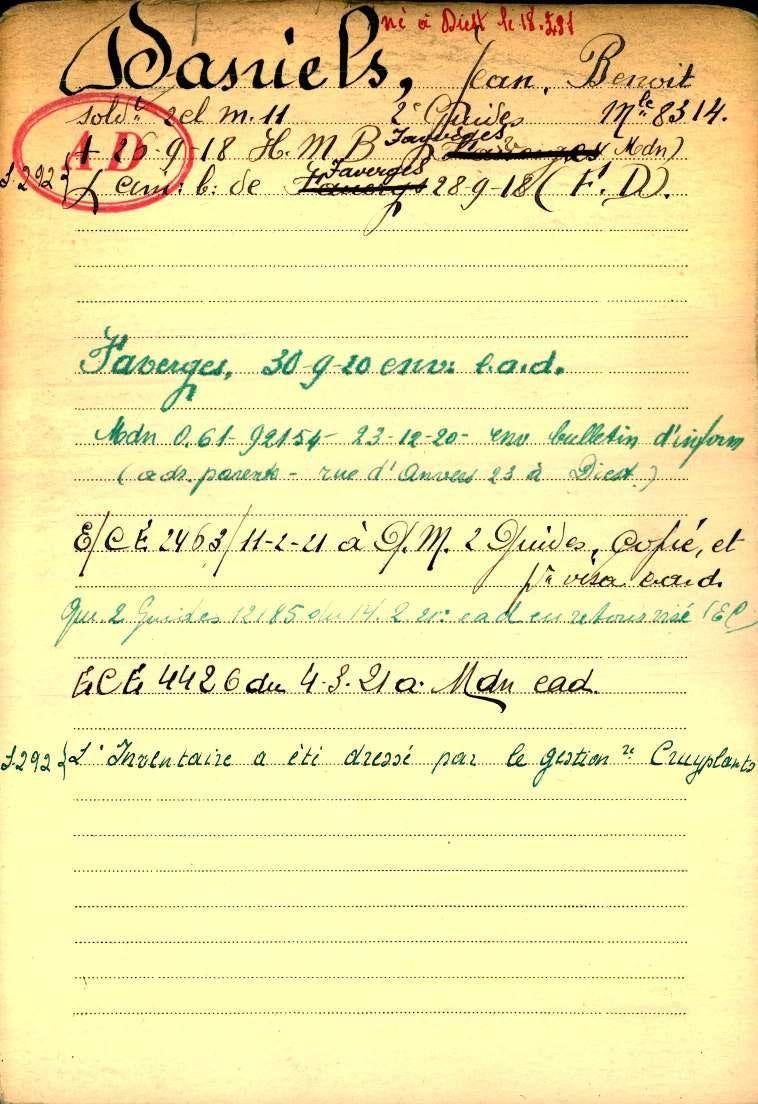 né à Diest le 18.3.81
Daniels, Jean, Benoit
sold.t rel m. 11 2e Guides Mle 8314.
A D
+ 26-9-18 H. M B Faverges Mdn)
S.292 { cim: b: de Faverges 28-9-18 (F. D).
Faverges, 30-9-20 env: c.a.d.
Mdn 0.61- 92154- 23-12-20- env bulletin d'inform
(adr. parents - rue d'Anvers 23 à Diest.)
E/C E 2463/11-2-21 à Q.M. 2 Guides, copie, et
pr visa c.a.d.
Qu. 2 Guides 12185 du 14.2 21: cad en retour visé (EC)
E.C.E. 4426 du 4-3-21 a. Mdn cad.
S.292 { L'Inventaire a été dressé par le gestionre Cruyplants